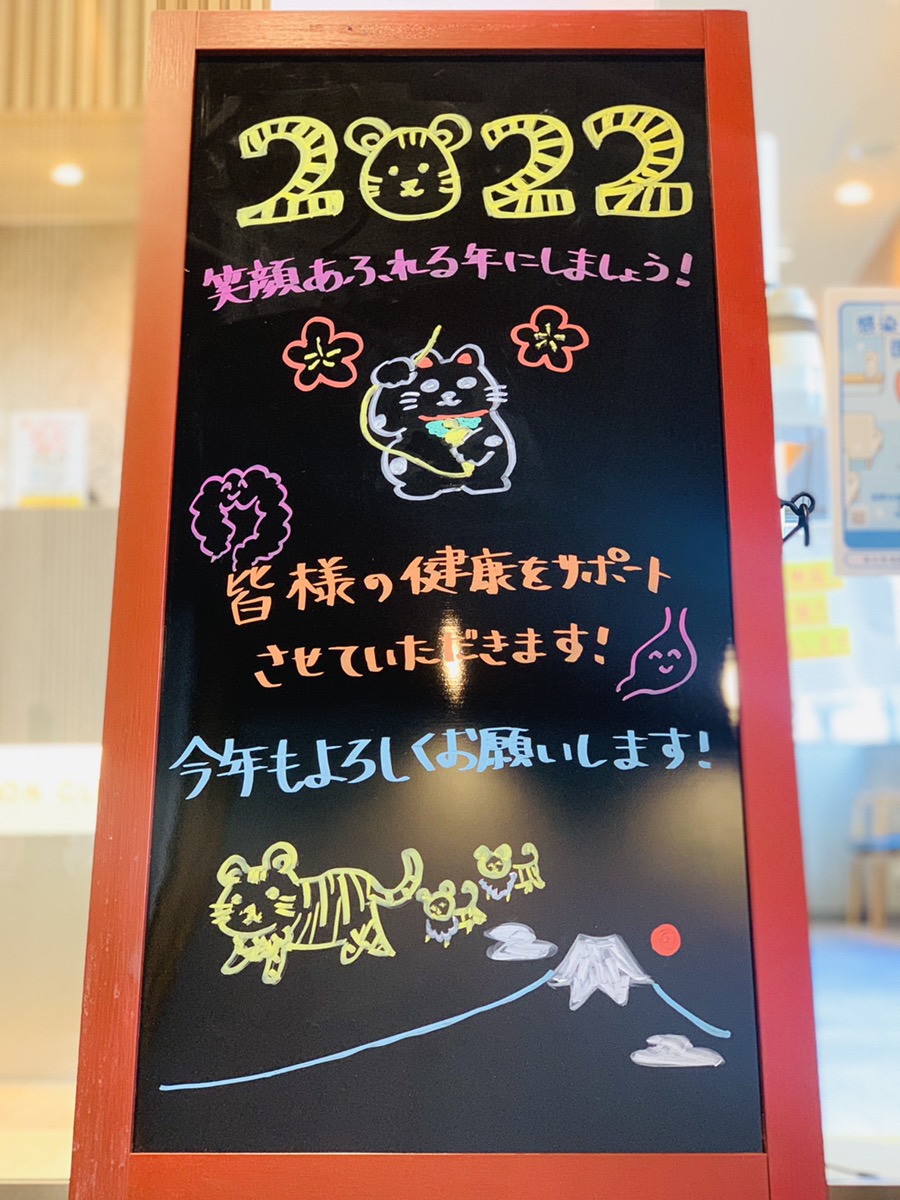 2022
笑顔あふれる年にしましょう!
皆様の健康をサポート
させていただきます!
今年もよろしくお願いします!
感染